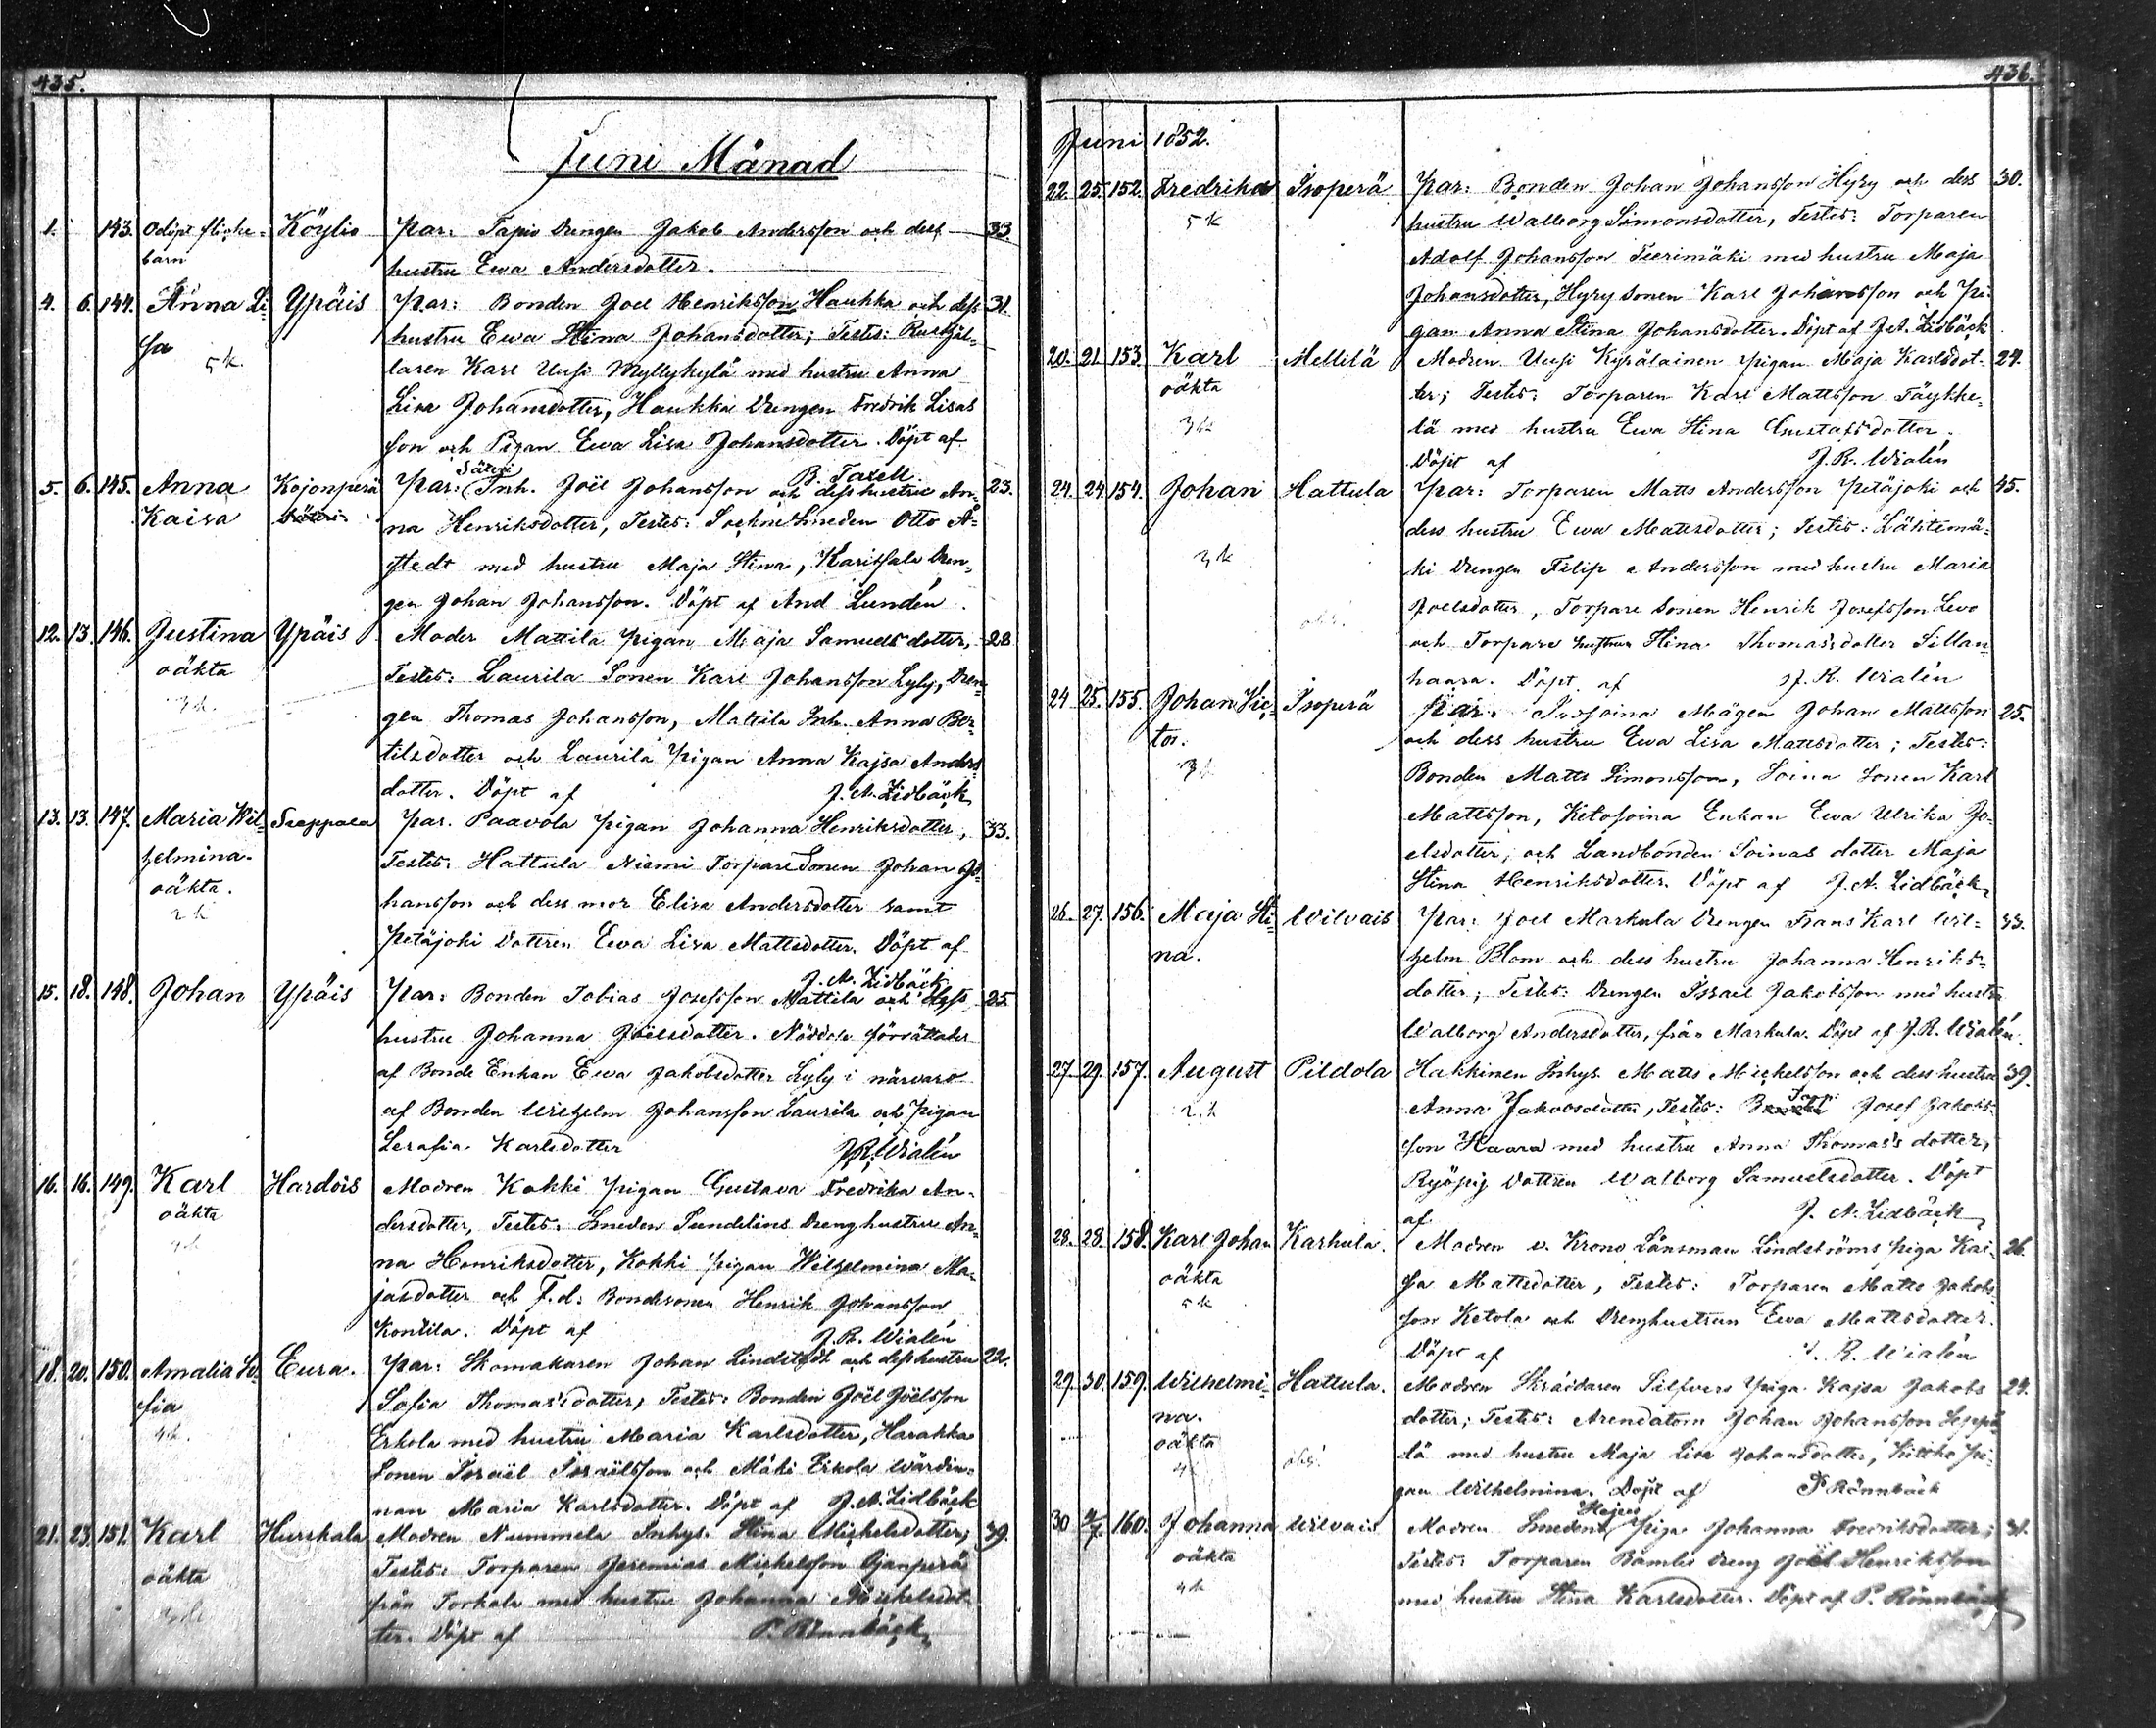 435.
Juni Månad
1. 143. Odöpt flicke- Köylio Par: Tapio Drengen Jakob Andersson och dess 33
barn hustru Ewa Andersdotter.
4. 6. 144. Anna Li- Ypäis Par: Bonden Joel Henriksson Haukka och dess 31
sa 5 k. hustru Ewa Stina Johansdotter; Testes: Rusthål-
laren Karl Uusi Myllykylä med hustru Anna
Lisa Johansdotter, Haukka Drengen Fredrik Lisas
son och Pigan Ewa Lisa Johansdotter. Döpt af
B. Taxell.
5. 6. 145. Anna Kojonperä Par: Säteri Inh. Joël Johansson och dess hustru An- 23.
Kaisa Säteri na Henriksdotter, Testes: Sockne Smeden Otto Å-
stedt med hustru Maja Stina, Karitsala Dren-
gen Johan Johansson. Döpt af And Lundén.
12. 13. 146. Justina Ypäis Moder Mattila pigan Maja Samuelsdotter, 28
oäkta Testes: Laurila Sonen Karl Johansson Lyly, Dren-
gen Thomas Johansson, Mattila Inh. Anna Ber-
tilsdotter och Laurila Pigan Anna Kajsa Anders
dotter. Döpt af J. A. Lidbäck
13. 13. 147. Maria Wil- Seppala Par. Paavola Pigan Johanna Henriksdotter, 33.
helmina. Testes: Hattula Niemi Torpare Sonen Johan Jo-
oäkta. hansson och dess mor Elisa Andersdotter samt
2 k Petäjoki Dottren Ewa Lisa Mattsdotter. Döpt af
J. A. Lidbäck
15. 18. 148. Johan Ypäis Par: Bonden Tobias Josefsson Mattila och dess 25.
hustru Johanna Joëlsdotter. Nöddop förrättades
af Bonde Enkan Ewa Jakobsdotter Lyly i närvaro
af Bonden Wilhelm Johansson Laurila och Pigan
Serafia Karlsdotter J. R. Wialén
16. 16. 149. Karl Hardois Modren Kokki Pigan Gustava Fredrika An-
oäkta dersdotter, Testes: Smeden Sundelins Drenghustru An-
na Henriksdotter, Kokki Pigan Wilhelmina Ma-
jasdotter och F.d. Bondesonen Henrik Johansson
Kontila. Döpt af J. R. Wialén
18. 20. 150. Amalia So- Eura. Par: Skomakaren Johan Lindstedt och dess hustru 22.
fia Sofia Thomasdotter, Testes: Bonden Joël Joëlsson
4 k. Erkola med hustru Maria Karlsdotter, Harakka
Sonen Israël Israëlsson och Mäki Erkola Wärdin-
nan Maria Karlsdotter. Döpt af J. A. Lidbäck
21. 23. 151. Karl Hurskala Modren Nummela Inhys. Stina Michelsdotter; 39.
oäkta Testes: Torparen Jeremias Michelsson Ojanperä
från Torkala med hustru Johanna Michelsdot-
ter. Döpt af P. Rönnbäck
436.
Juni 1852.
22. 25. 152. Fredrika Isoperä Par: Bonden Johan Johansson Hyry och dess 30.
5 k hustru Walborg Simonsdotter, Testes: Torparen
Adolf Johansson Teerimäki med hustru Maja
Johansdotter, Hyry Sonen Karl Johansson och Pi-
gan Anna Stina Johansdotter. Döpt af J. A. Lidbäck
20. 21. 153. Karl Mellilä Modren Uusi Kyrälainen Pigan Maja Karlsdot- 24.
oäkta ter; Testes: Torparen Karl Mattsson Täykke-
3 k lä med hustru Ewa Stina Gustafsdotter.
Döpt af J. R. Wialén
24. 24. 154. Johan Hattula Par: Torparen Matts Andersson Petäjoki och 45.
dess hustru Ewa Mattsdotter; Testes: Lähtemä-
3 k ki Drengen Filip Andersson med hustru Maria
Joelsdotter, Torpare Sonen Henrik Josefsson Levo
och Torpare hustrun Stina Thomasdotter Sillan-
haara. Döpt af J. R. Wialén
24 25. 155. Johan Vic- Isoperä Par: Mågen Johan Mattsson 25.
tor. och dess hustru Ewa Lisa Mattsdotter; Testes:
3 k Bonden Matts Simonsson, Soina Sonen Karl
Mattsson, Ketosoina Enkan Ewa Ulrika Jo-
elsdotter, och Landbonden Soinas dotter Maja
Stina Henriksdotter. Döpt af J. A. Lidbäck
26. 27. 156. Maja Sti- Wilvais Par: Joel Markula Drengen Frans Karl Wil- 33.
na. helm Blom och dess hustru Johanna Henriks-
dotter; Testes: Drengen Israel Jakobsson med hustru
Walborg Andersdotter, från Markula. Döpt af J. R. Wialén.
27. 29. 157. August Pildola Hakkinen Inhys. Matts Michelsson och dess hustru 39.
2 k Anna Jakobsdotter, Testes: Josef Jakobs-
son Haara med hustru Anna Thomasdotter,
Ryöpy Dottren Walborg Samuelsdotter. Döpt
af J. A. Lidbäck
28. 28. 158. Karl Johan Karhula. Modren v. Krono Länsman Lindströms piga Kai- 26.
oäkta sa Mattsdotter, Testes: Torparen Matts Jakobs-
5 k son Ketola och Drenghustrun Ewa Mattsdotter.
Döpt af J. R. Wialén
29. 30. 159. Wilhelmi- Hattula. Modren Skräddaren Silfvers Piga Kajsa Jakobs 24.
na. dotter; Testes: Arendatorn Johan Johansson Seppä-
oäkta lä med hustru Maja Lisa Johansdotter, Pi-
gan Wilhelmina. Döpt af P Rönnbäck
30 2/7. 160. Johanna Wilvais Modren Smeden Piga Johanna Fredriksdotter; 31.
oäkta Testes: Torparen Bambis Dreng Joël Henriksson
4 k med hustru Stina Karlsdotter. Döpt af P. Rönnbäck